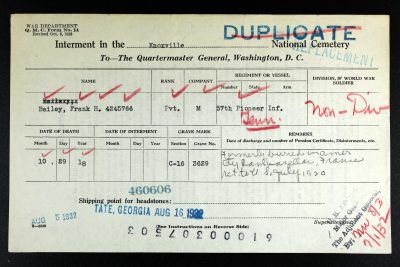 WAR DEPARTMENT
Q. M. C. Form No. 14
Revised Oct. 9, 1925
DUPLICATE
REPLACEMENT
Interment in the Knoxville National Cemetery
To—The Quartermaster General, Washington, D. C.
NAME
RANK
COMPANY
REGIMENT OR VESSEL
Number State Arm
DIVISION, IF WORLD WAR SOLDIER
Bailey, Frank H. 4245766
Pvt.
M
57th Pioneer Inf.
Tenn.
Non-Div
DATE OF DEATH
DATE OF INTERMENT
GRAVE MARK
REMARKS
Month Day Year
Month Day Year
Section Grave No.
Date of discharge and number of Pension Certificate, Disinterments, etc.
10 29 18
C-16 3629
Formerly buried in Amer
France
ret to U.S. July 1920
460606
Shipping point for headstones:
TATE, GEORGIA AUG 16 1932
AUG 5 1932
(See Instructions on Reverse Side)
61000307503
The Adjutant General
By:
7/1/32